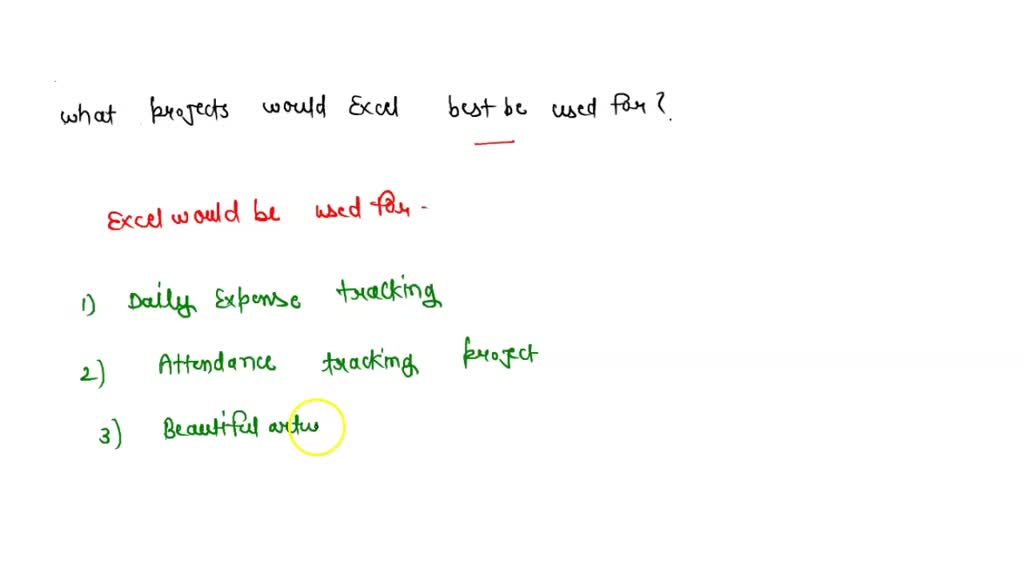 what projects would Excel best be used for?
Excel would be used for -
1) Daily Expense tracking
2) Attendance tracking project
3) Beautiful artw